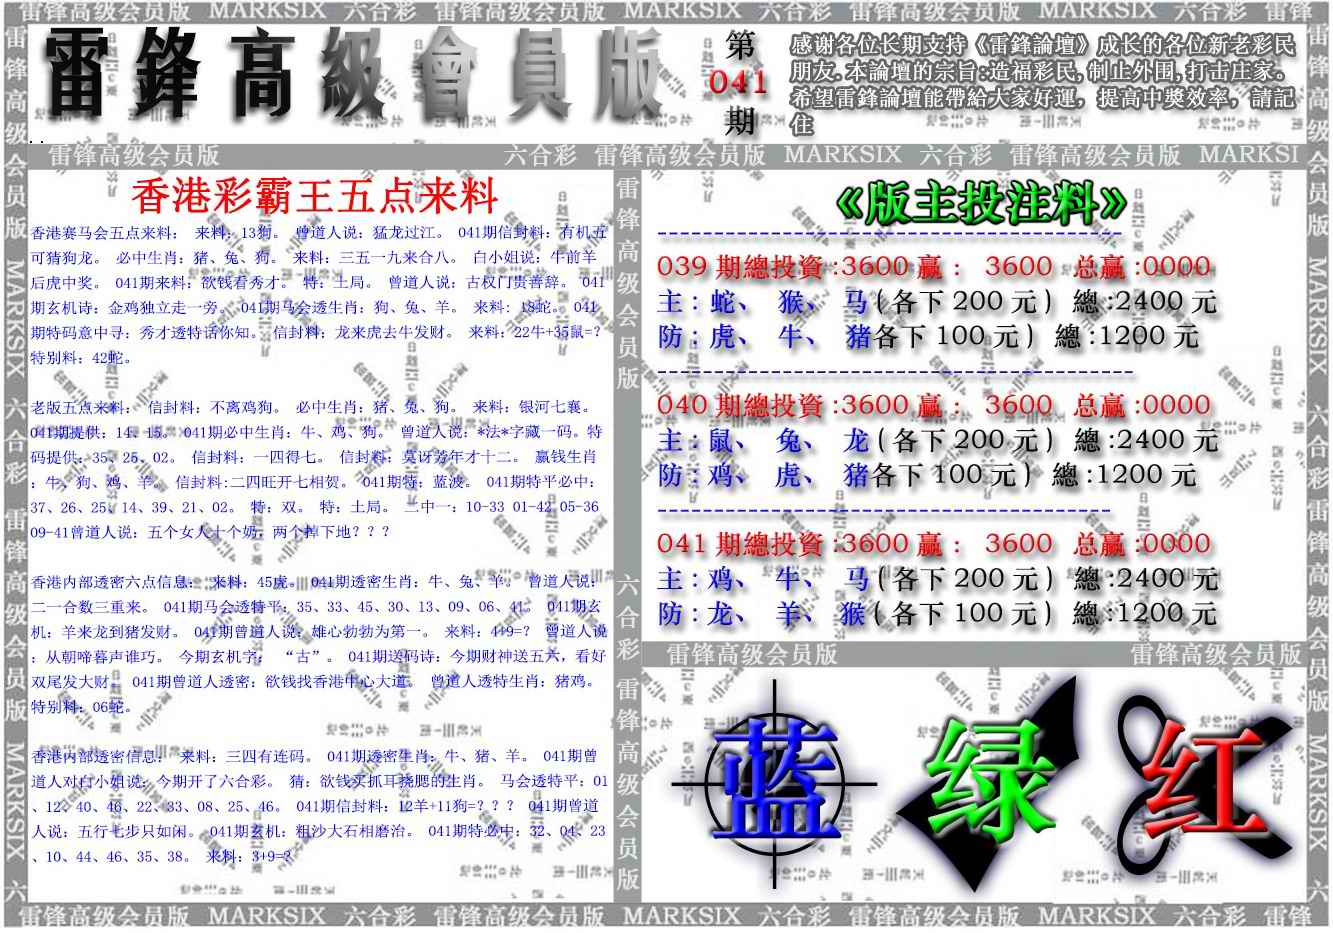 雷锋高级会员版 MARKSIX 六合彩 雷锋高级会员版 MARKSIX 六合彩 雷锋高级会员版 MARKSIX 六合彩 雷锋
雷鋒高級會員版
第
041
期
感谢各位长期支持《雷鋒論壇》成长的各位新老彩民
朋友.本論壇的宗旨:造福彩民,制止外围,打击庄家。
希望雷鋒論壇能帶給大家好運，提高中獎效率，請記
住
雷锋高级会员版 六合彩 雷锋高级会员版 MARKSIX 六合彩 雷锋高级会员版 MARKSI
香港彩霸王五点来料
香港赛马会五点来料： 来料：13狗。 曾道人说：猛龙过江。 041期信封料：有机五
可猜狗龙。 必中生肖：猪、兔、狗。 来料：三五一九来合八。 白小姐说：牛前羊
后虎中奖。 041期来料：欲钱看秀才。 特：土局。 曾道人说：古权门贵善辞。 041
期玄机诗：金鸡独立走一旁。 041期马会透生肖：狗、兔、羊。 来料：18蛇。 041
期特码意中寻：秀才透特话你知。 信封料：龙来虎去牛发财。 来料：22牛+35鼠=?
特别料：42蛇。
老版五点来料： 信封料：不离鸡狗。 必中生肖：猪、兔、狗。 来料：银河七襄。
041期提供：14、15。 041期必中生肖：牛、鸡、狗。 曾道人说：*法*字藏一码。特
码提供：35、25、02。 信封料：一四得七。 信封料：莫讶芳年才十二。 赢钱生肖
：牛、狗、鸡、羊。 信封料:二四旺开七相贺。 041期特：蓝波。 041期特平必中：
37、26、25、14、39、21、02。 特：双。 特：土局。 二中一：10-33 01-42 05-36
09-41曾道人说：五个女人十个奶，两个掉下地？？？
香港内部透密六点信息： 来料：45虎。 041期透密生肖：牛、兔、羊。 曾道人说：
二一合数三重来。 041期马会透特平：35、33、45、30、13、09、06、41。 041期玄
机：羊来龙到猪发财。 041期曾道人说：雄心勃勃为第一。 来料：4+9=? 曾道人说
：从朝啼暮声谁巧。 今期玄机字： “古”。 041期送码诗：今期财神送五六，看好
双尾发大财。 041期曾道人透密：欲钱找香港中心大道。 曾道人透特生肖：猪鸡。
特别料：06蛇。
香港内部透密信息： 来料：三四有连码。 041期透密生肖：牛、猪、羊。 041期曾
道人对白小姐说：今期开了六合彩。 猜：欲钱买抓耳挠腮的生肖。 马会透特平：01
、12、40、46、22、33、08、25、46。 041期信封料：12羊+11狗=？？？ 041期曾道
人说：五行七步只如闲。 041期玄机：粗沙大石相磨治。 041期特必中：32、04、23
、10、44、46、35、38。 来料：3+9=?
《版主投注料》
039 期總投資:3600 赢： 3600 总赢:0000
主：蛇、 猴、 马（各下 200 元） 總:2400 元
防：虎、 牛、 猪各下 100 元） 總:1200 元
040 期總投資:3600 赢： 3600 总赢:0000
主：鼠、 兔、 龙（各下 200 元） 總:2400 元
防：鸡、 虎、 猪各下 100 元） 總:1200 元
041 期總投資:3600 赢： 3600 总赢:0000
主：鸡、 牛、 马（各下 200 元） 總:2400 元
防：龙、 羊、 猴（各下 100 元） 總:1200 元
雷锋高级会员版 雷锋高级会员版
蓝 绿 红
雷锋高级会员版 MARKSIX 六合彩 雷锋高级会员版 MARKSIX 六合彩 雷锋高级会员版 MARKSIX 六合彩 雷锋